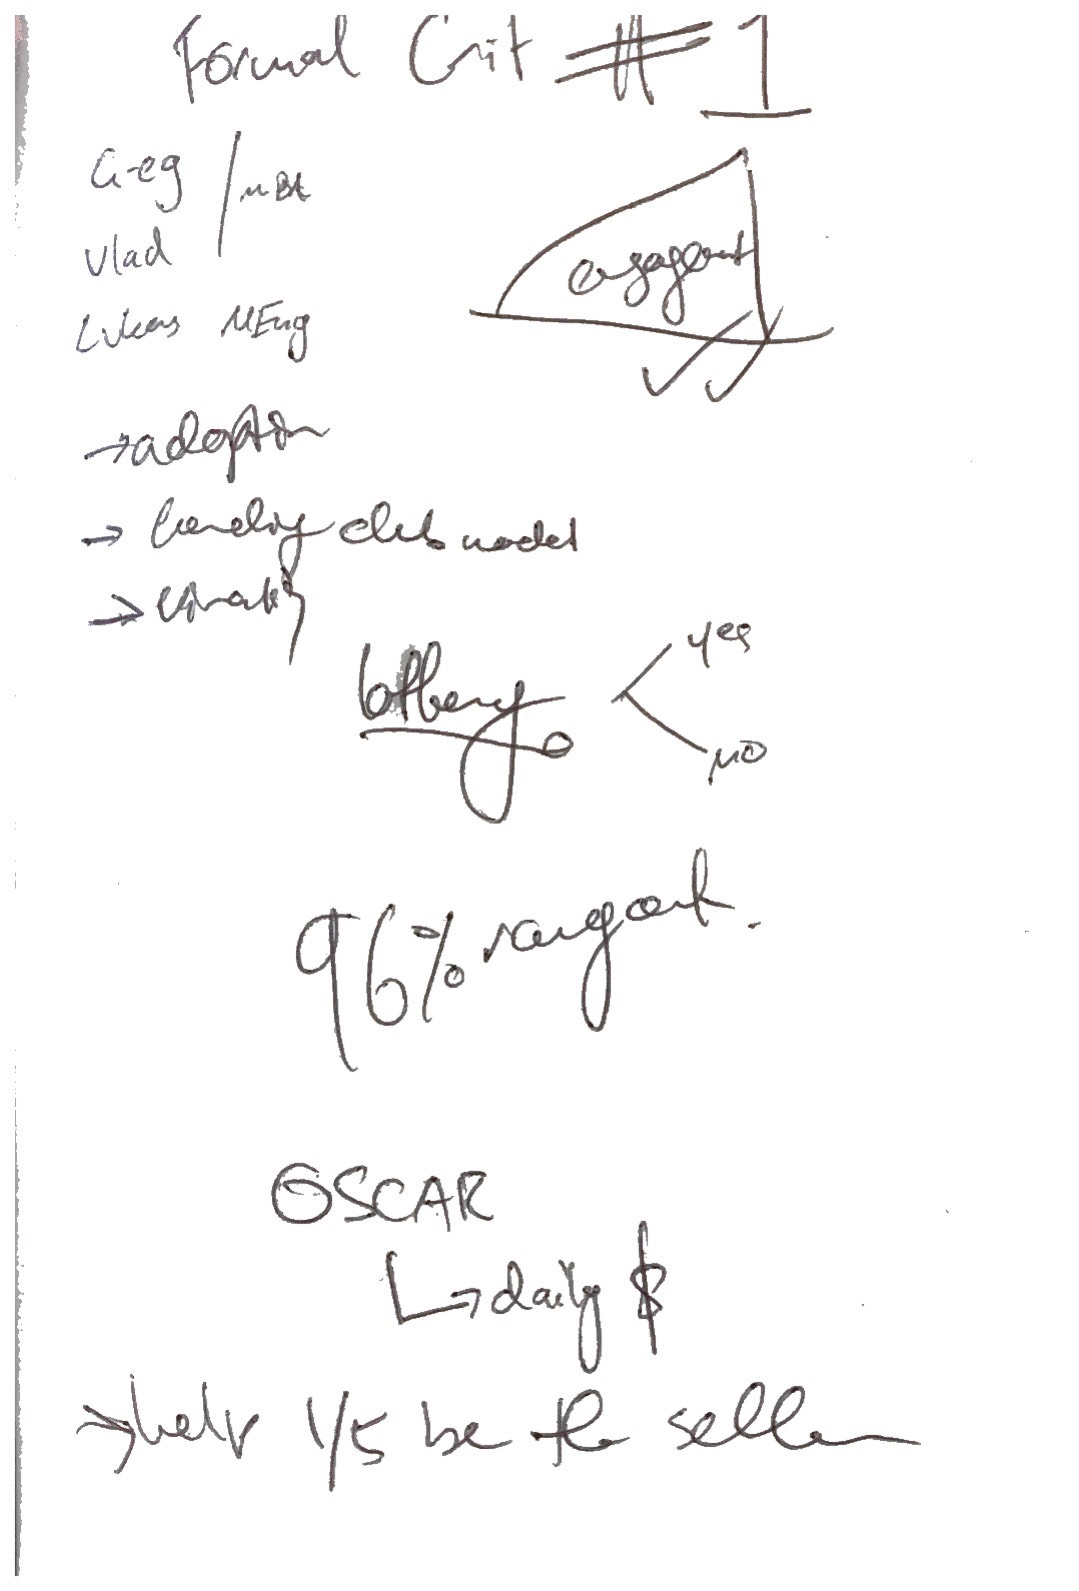 Formal Crit #1
Greg / MBA
Vlad
Lukas MEng
engagement
→ adoption
→ lending club model
→
lottery
yes
no
96%
OSCAR
↳ daily $
→ help 1/5 be the seller